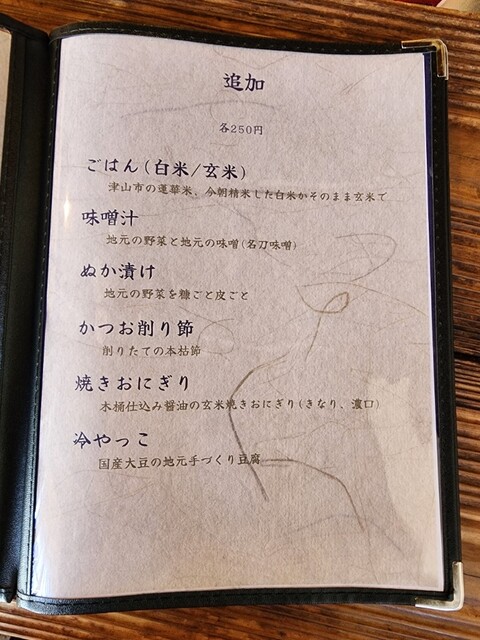 追加
各250円
ごはん(白米/玄米)
津山市の蓮華米、今朝精米した白米かそのまま玄米で
味噌汁
地元の野菜と地元の味噌(名刀味噌)
ぬか漬け
地元の野菜を糠ごと皮ごと
かつお削り節
削りたての本枯節
焼きおにぎり
木桶仕込み醤油の玄米焼きおにぎり(きなり、濃口)
冷やっこ
国産大豆の地元手づくり豆腐